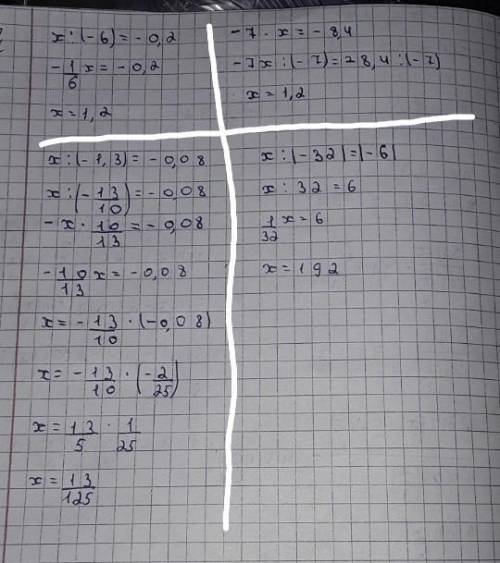 x : (-6) = -0,2
-1/6 x = -0,2
x = 1,2
-7 · x = -8,4
-7x : (-7) = 28,4 : (-7)
x = 1,2
x : (-1,3) = -0,08
x : (-13/10) = -0,08
-x · 10/13 = -0,08
-10/13 x = -0,08
x = -13/10 · (-0,08)
x = -13/10 · (-2/25)
x = 13/5 · 1/25
x = 13/125
x : |-32| = |-6|
x : 32 = 6
1/32 x = 6
x = 192